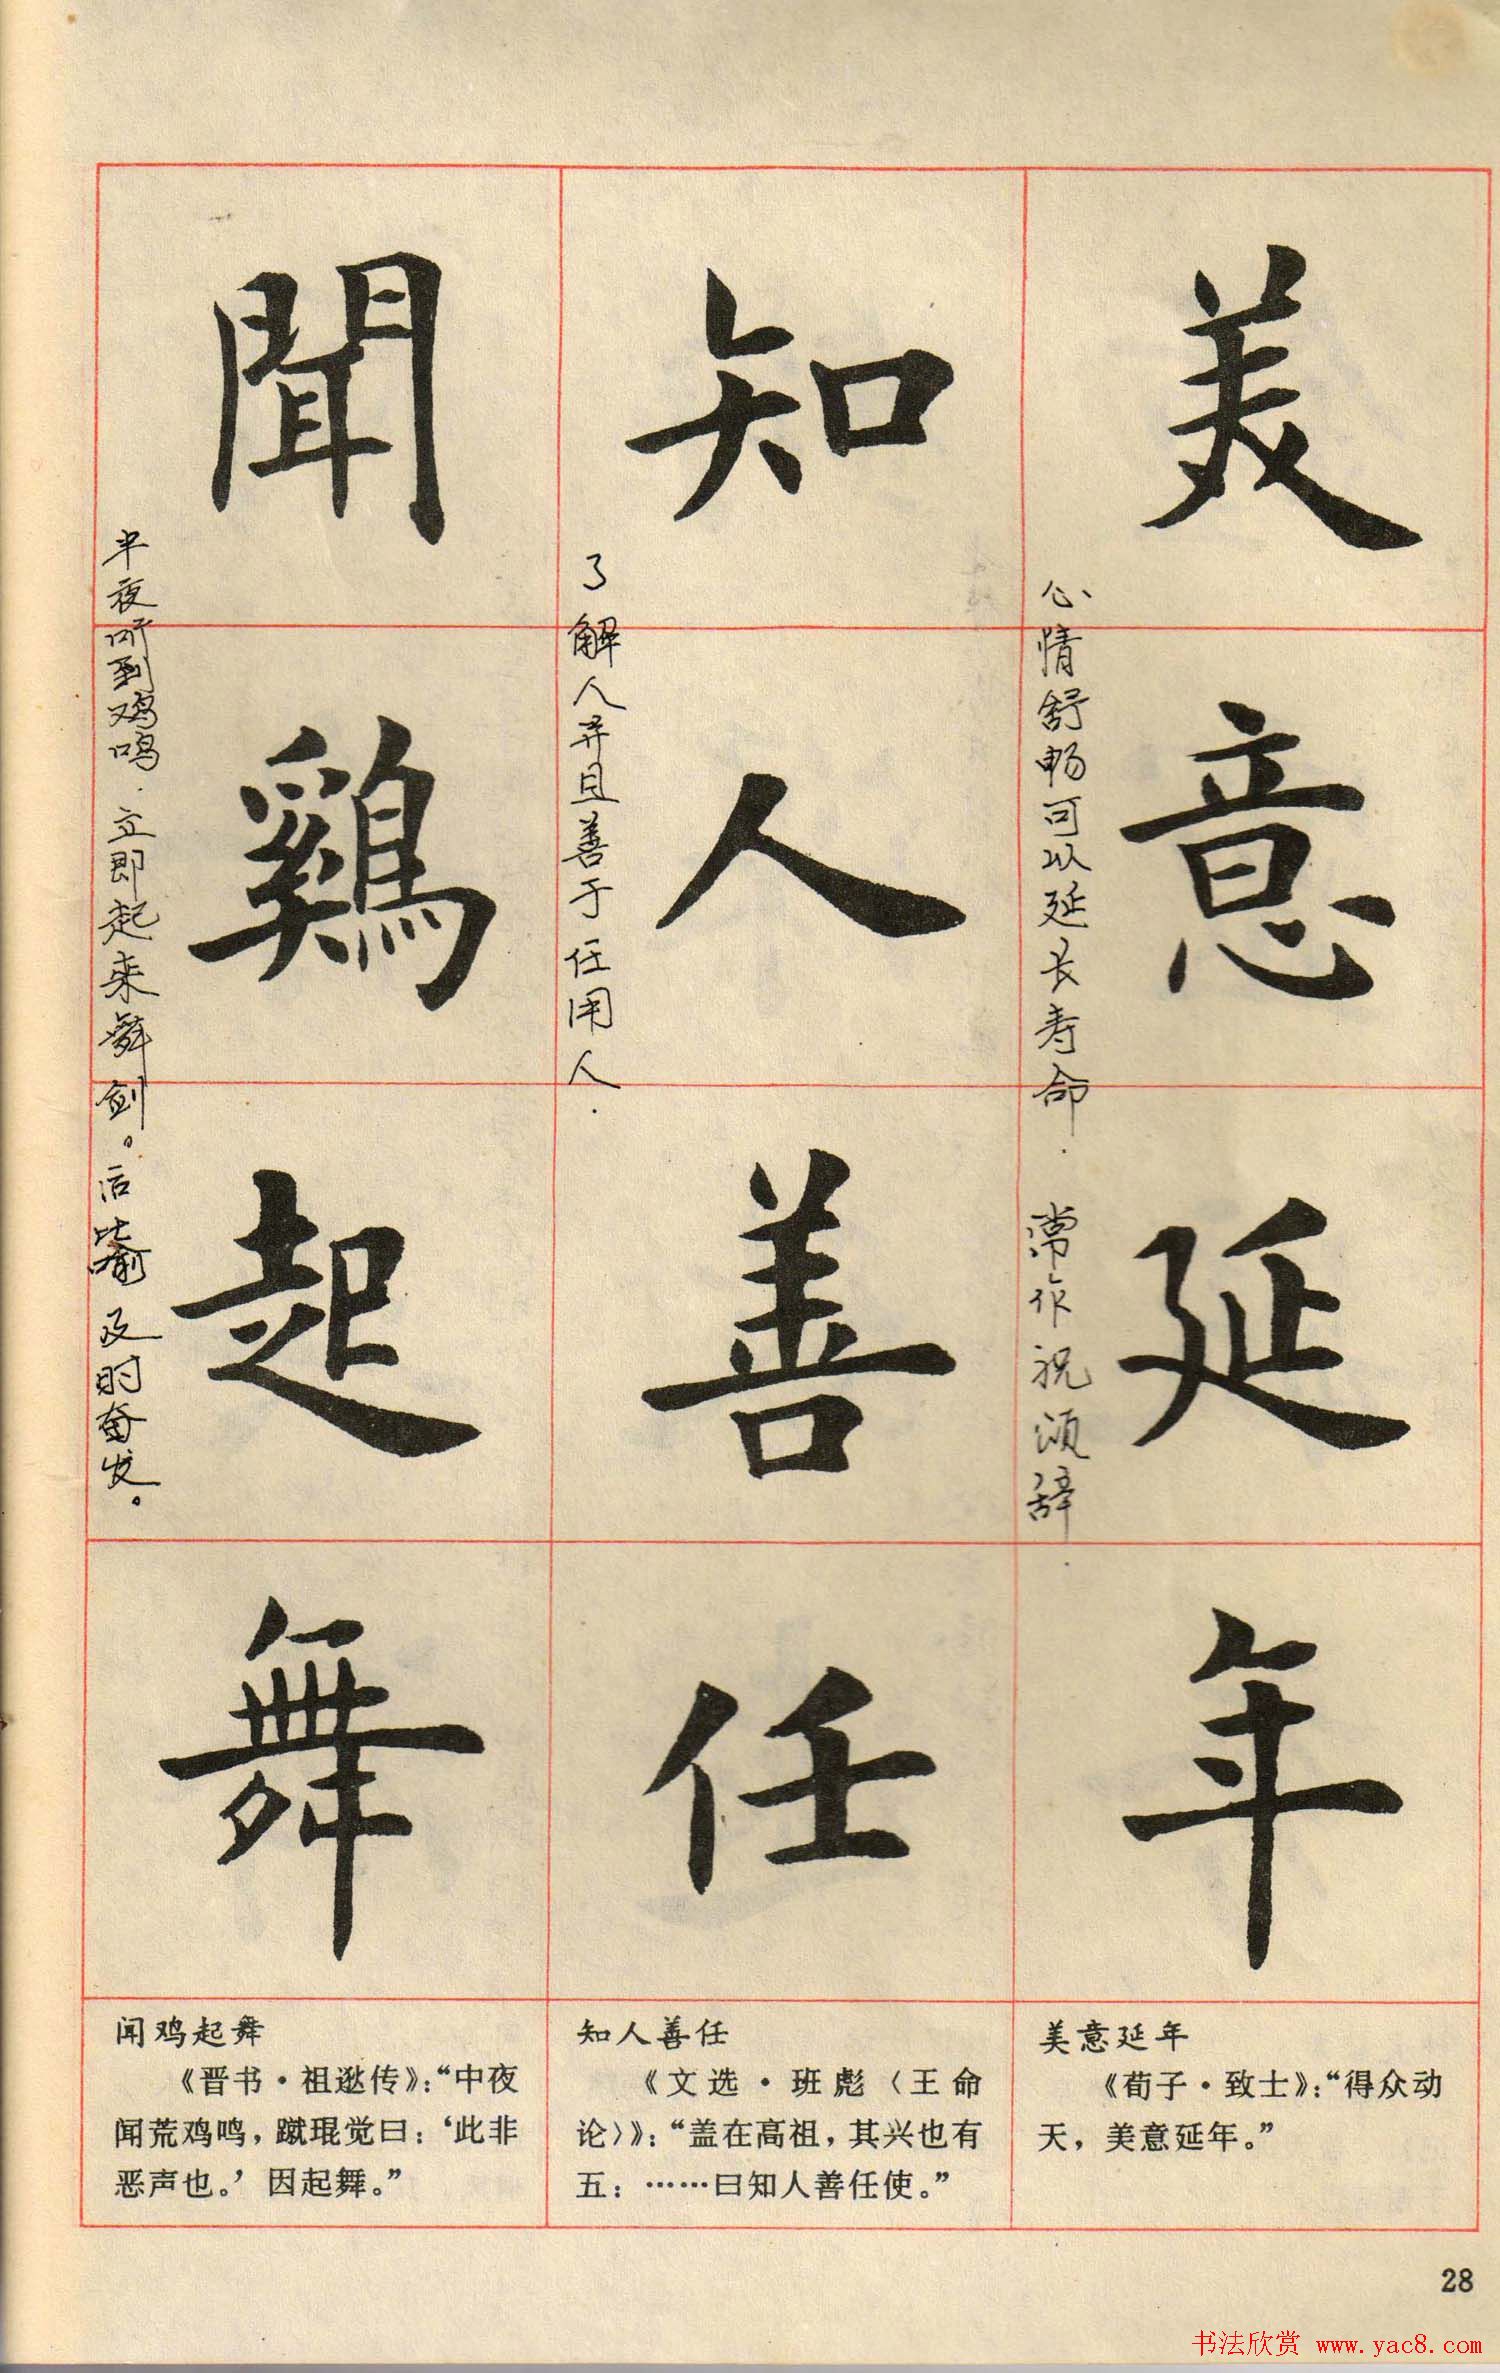 美意延年
心情舒畅可以延长寿命.常作祝颂辞.
知人善任
了解人并且善于任用人.
聞鷄起舞
半夜听到鸡鸣.立即起来舞剑。后比喻及时奋发。
美意延年
《荀子·致士》：“得众动
天，美意延年。”
知人善任
《文选·班彪〈王命
论〉》：“盖在高祖，其兴也有
五：……曰知人善任使。”
闻鸡起舞
《晋书·祖逖传》：“中夜
闻荒鸡鸣，蹴琨觉曰：‘此非
恶声也。’因起舞。”
28
书法欣赏 www.yac8.com